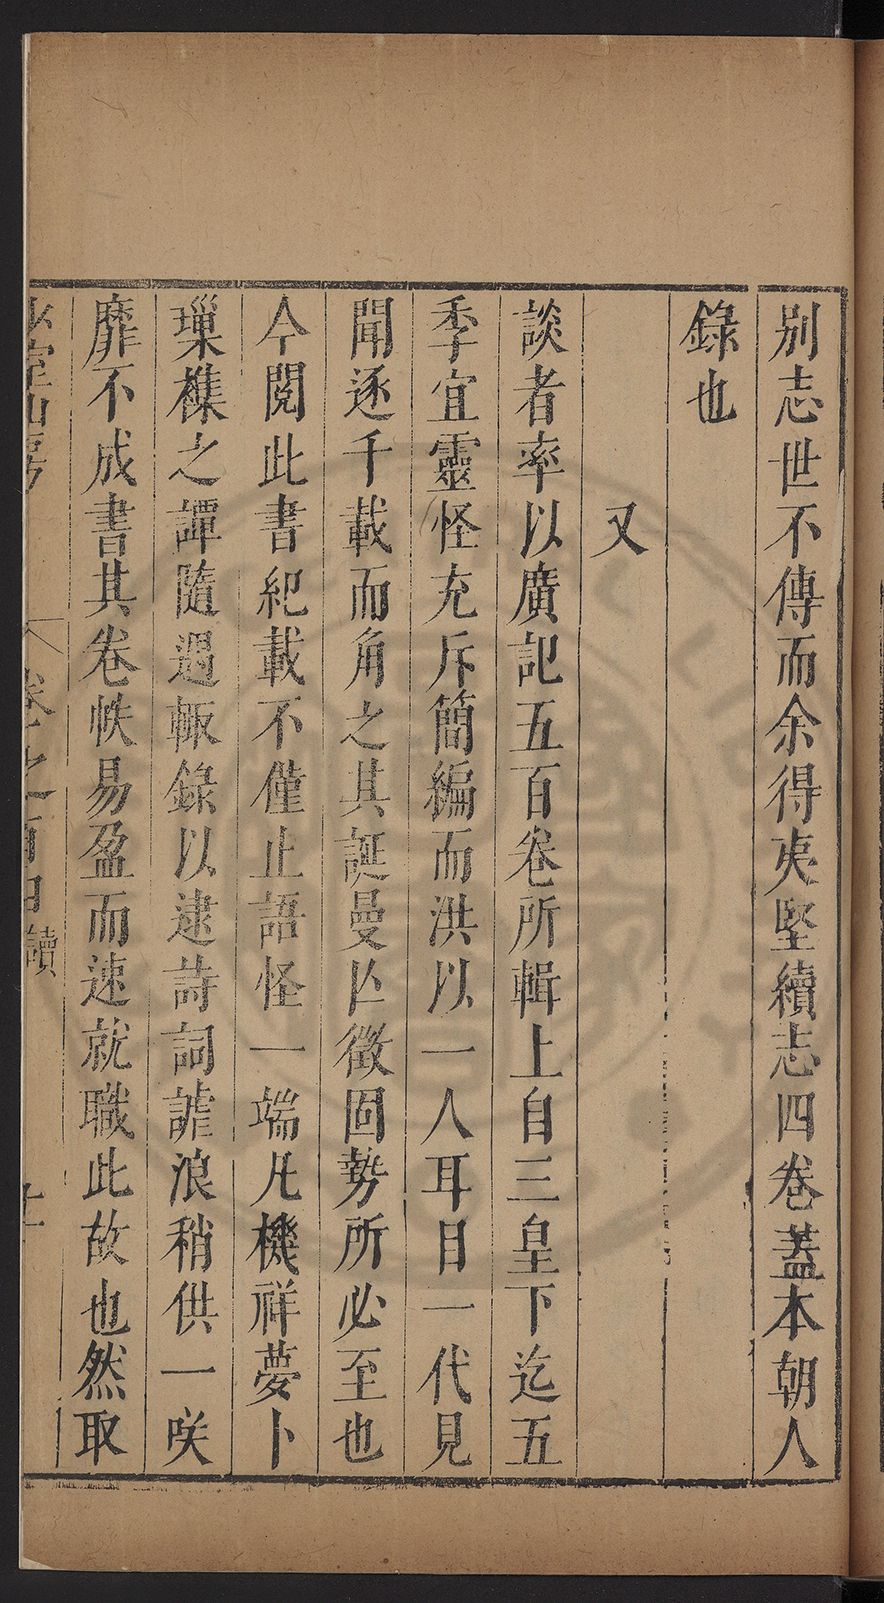 別志世不傳而余得夷堅續志四卷蓋本朝人
錄也
又
談者率以廣記五百卷所輯上自三皇下迄五
季宜靈怪充斥簡編而洪以一人耳目一代見
聞逐千載而角之其誕曼叵徵固勢所必至也
今閱此書紀載不僅止語怪一端凡機祥夢卜
璅樵之譚隨遇輙錄以逮詩詞謔浪稍供一咲
靡不成書其卷帙易盈而速就職此故也然取
室山房 卷之百四 讀